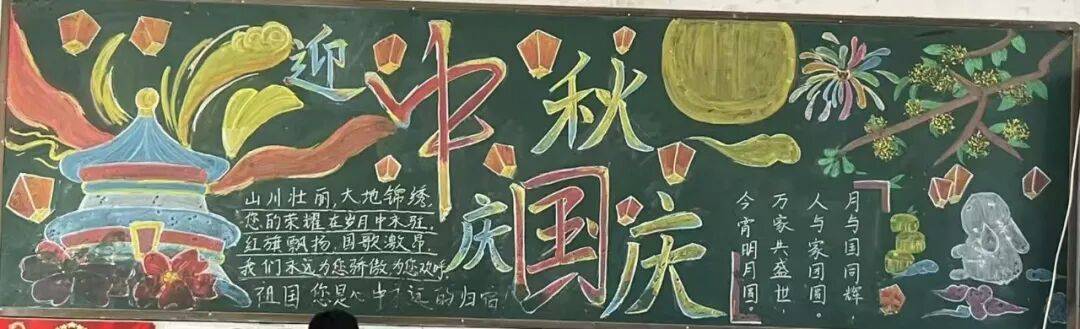 迎中秋
庆国庆
山川壮丽,大地锦绣.
您的荣耀在岁月中永驻.
红旗飘扬,国歌激昂.
我们永远为您骄傲为您欢呼
祖国您是心中永远的归宿!
月与国同辉,
人与家团圆。
万家共盛世,
今宵明月圆。